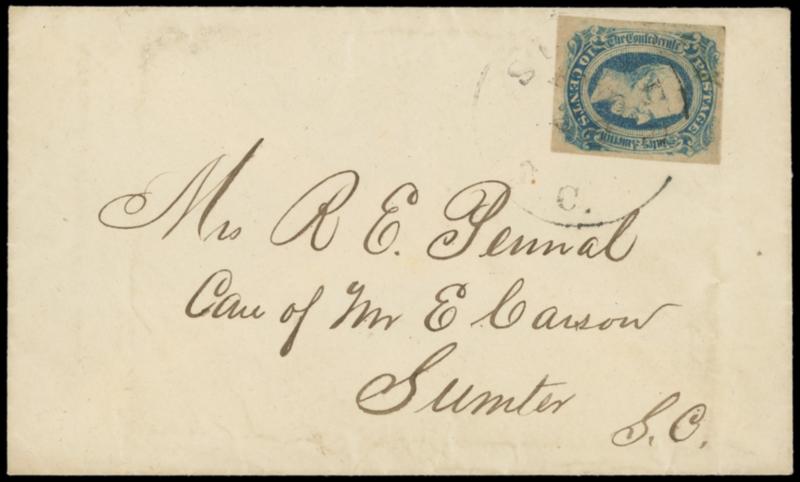 The Confederate
States of America
POSTAGE
10 CENTS
S
C.
Mrs R E. Pennal
Care of Mr E Carson
Sumter
S.C.